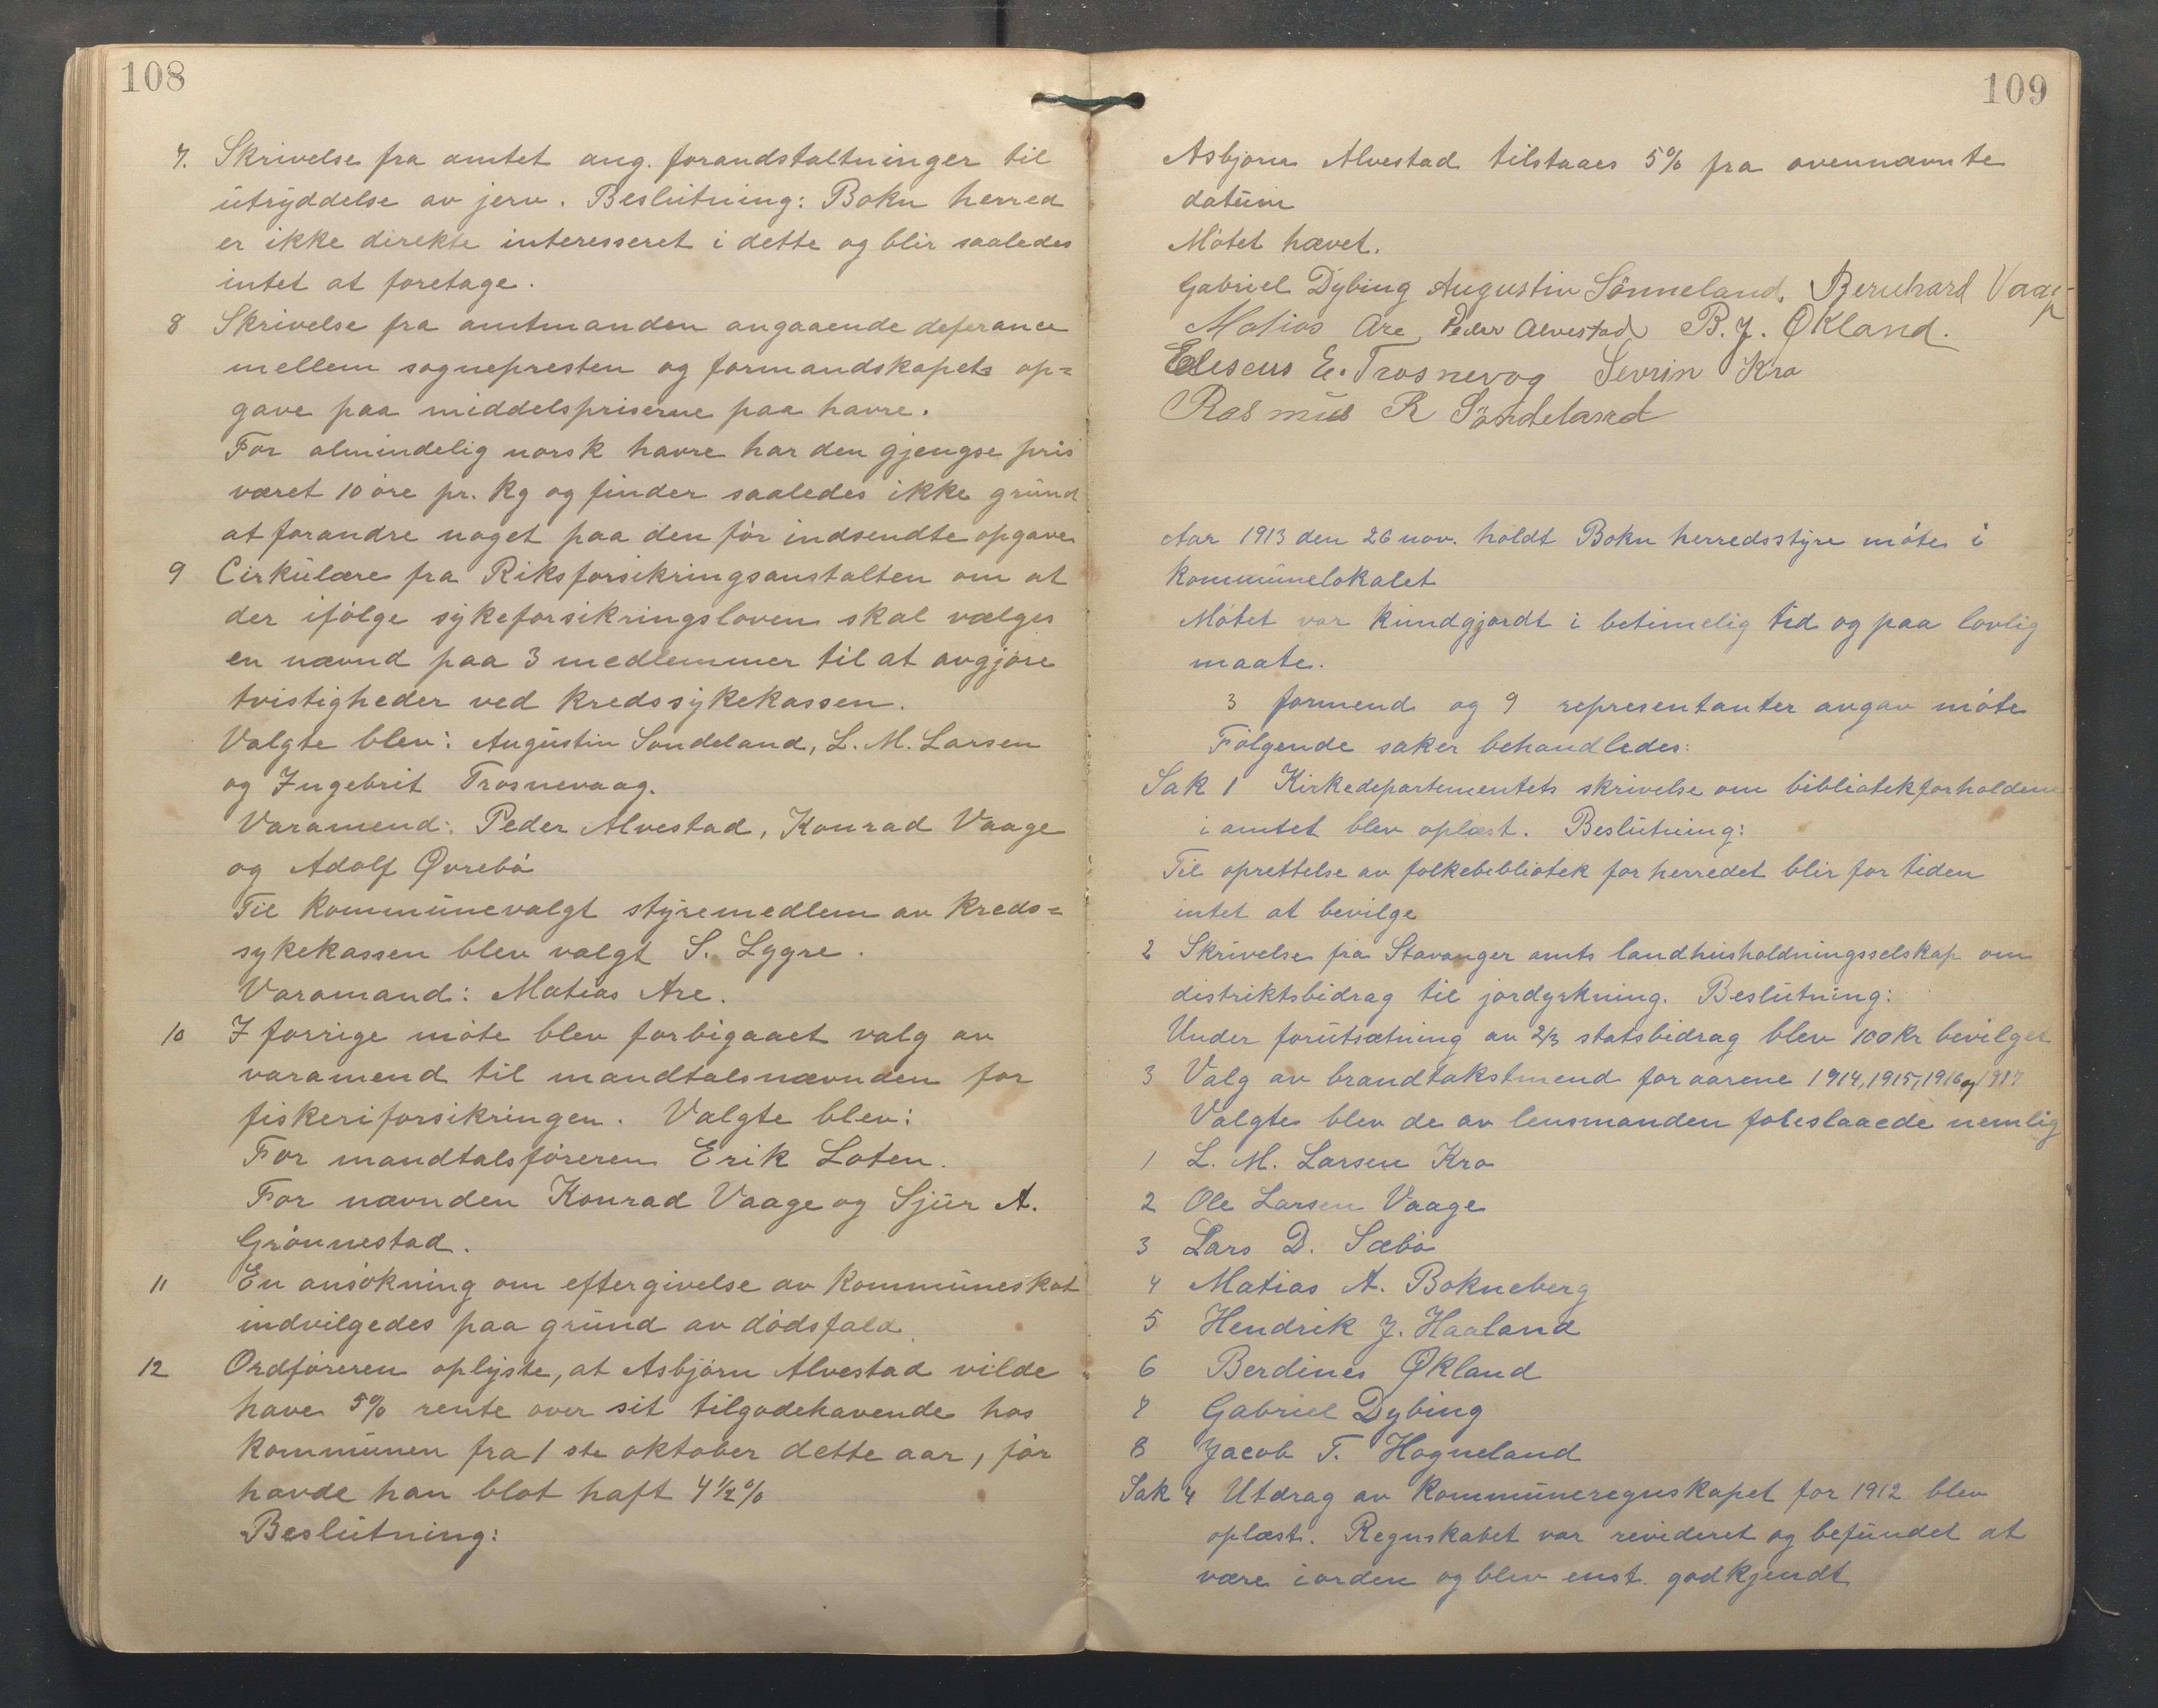 108
7. Skrivelse fra amtet ang. forandstaltninger til
utryddelse av jerv. Beslutning: Bokn herred
er ikke direkte interesseret i dette og blir saaledes
intet at foretage.
8 Skrivelse fra amtmanden angaaende deferance
mellem sognepresten og formandskapets op=
gave paa middelspriserne paa havre.
For almindelig norsk havre har den gjengse pris
været 10 öre pr. kg og finder saaledes ikke grund
at forandre noget paa den för indsendte opgave
9 Cirkulære fra Riksforsikringsanstalten om at
der ifölge sykeforsikringsloven skal vælges
en nævnd paa 3 medlemmer til at avgjöre
tvistigheder ved kredssykekassen.
Valgte blev: Augustin Sondeland, L. M. Larsen
og Ingebrit Trosnevaag.
Varamend: Peder Alvestad, Konrad Vaage
og Adolf Øvrebö
Til kommunevalgt styremedlem av kreds=
sykekassen blev valgt S. Lygre.
Varamand: Matias Are.
10 I forrige möte blev forbigaaet valg av
varamend til mandtalsnævnden for
fiskeriforsikringen. Valgte blev:
For mandtalsföreren Erik Loten.
For nævnden Konrad Vaage og Sjur A.
Grönnestad.
11 En ansökning om eftergivelse av kommuneskat
indvilgedes paa grund av dödsfald.
12 Ordföreren oplyste, at Asbjörn Alvestad vilde
have 5% rente over sit tilgodehavende hos
kommunen fra 1 ste oktober dette aar, för
havde han blot haft 4 1/2 %
Beslutning:
109
Asbjörn Alvestad tilstaaes 5% fra ovennævnte
datum
Mötet hævet.
Gabriel Dybing Augustin Sönneland. Bernhard Vaage
Matias Are Peder Alvestad B. J. Økland.
Eliseus E. Trosnevog Sevrin Kro
Rasmus R Söndeland
Aar 1913 den 26 nov. holdt Bokn herredsstyre möte i
kommunelokalet
Mötet var kundgjordt i betimelig tid og paa lovlig
maate.
3 formend og 9 representanter avgav möte
Fölgende saker behandledes:
Sak 1 Kirkedepartementets skrivelse om bibliotekforholdene
i amtet blev oplæst. Beslutning:
Til oprettelse av folkebibliotek for herredet blir for tiden
intet at bevilge
2 Skrivelse fra Stavanger amts landhusholdningsselskap om
distriktsbidrag til jordyrkning. Beslutning:
Under forutsætning av 2/3 statsbidrag blev 100 kr bevilget
3 Valg av brandtakstmend for aarene 1914, 1915, 1916 og 1917
Valgte blev de av lensmanden foreslaaede nemlig
1 L. M. Larsen Kro
2 Ole Larsen Vaage
3 Lars D. Sæbö
4 Matias A. Bokneberg
5 Hendrik J. Haaland
6 Berdines Økland
7 Gabriel Dybing
8 Jacob T. Hogneland
Sak 4 Utdrag av kommuneregnskapet for 1912 blev
oplæst. Regnskabet var revideret og befundet at
være i orden og blev enst. godkjendt